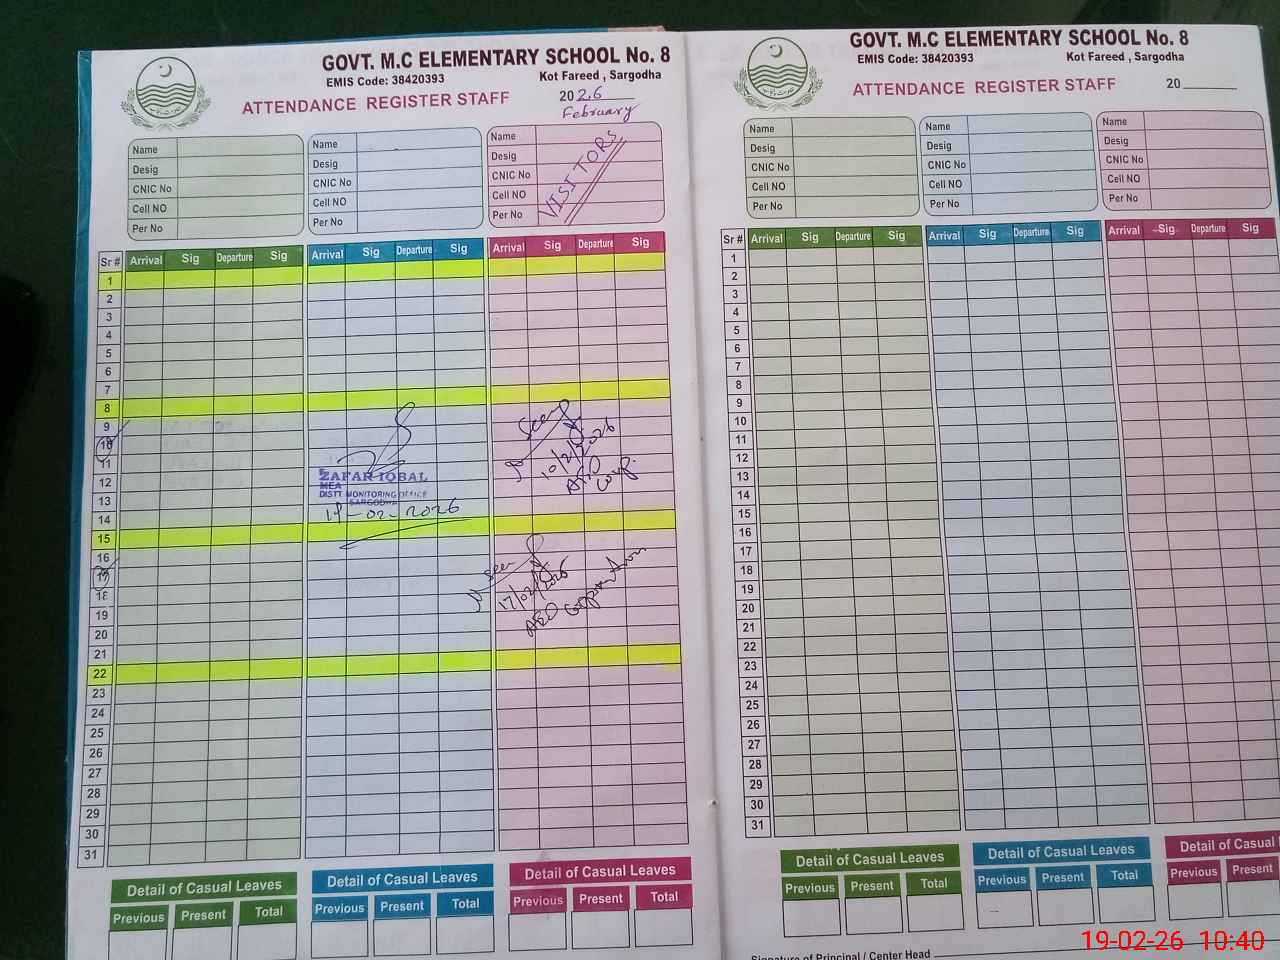 GOVT. M.C ELEMENTARY SCHOOL No. 8
EMIS Code: 38420393 Kot Fareed , Sargodha
ATTENDANCE REGISTER STAFF 2026
February
Name Name Name
Desig Desig Desig
CNIC No CNIC No CNIC No
Cell NO Cell NO Cell NO
Per No Per No Per No
VISITORS
Sr # Arrival Sig Departure Sig Arrival Sig Departure Sig Arrival Sig Departure Sig
1
2
3
4
5
6
7
8
9
10
11
12
13
14
15
16
17
18
19
20
21
22
23
24
25
26
27
28
29
30
31
ZAFAR IQBAL
MEA
DISTT MONITORING OFFICE
SARGODHA
Seen
10/2/2026
AEO
Seen
17/02/2026
AEO
Detail of Casual Leaves Detail of Casual Leaves Detail of Casual Leaves
Previous Present Total Previous Present Total Previous Present Total
GOVT. M.C ELEMENTARY SCHOOL No. 8
EMIS Code: 38420393 Kot Fareed , Sargodha
ATTENDANCE REGISTER STAFF 20
Name Name Name
Desig Desig Desig
CNIC No CNIC No CNIC No
Cell NO Cell NO Cell NO
Per No Per No Per No
Sr # Arrival Sig Departure Sig Arrival Sig Departure Sig Arrival Sig Departure Sig
1
2
3
4
5
6
7
8
9
10
11
12
13
14
15
16
17
18
19
20
21
22
23
24
25
26
27
28
29
30
31
Detail of Casual Leaves Detail of Casual Leaves Detail of Casual
Previous Present Total Previous Present Total Previous Present
Signature of Principal / Center Head
19-02-26 10:40